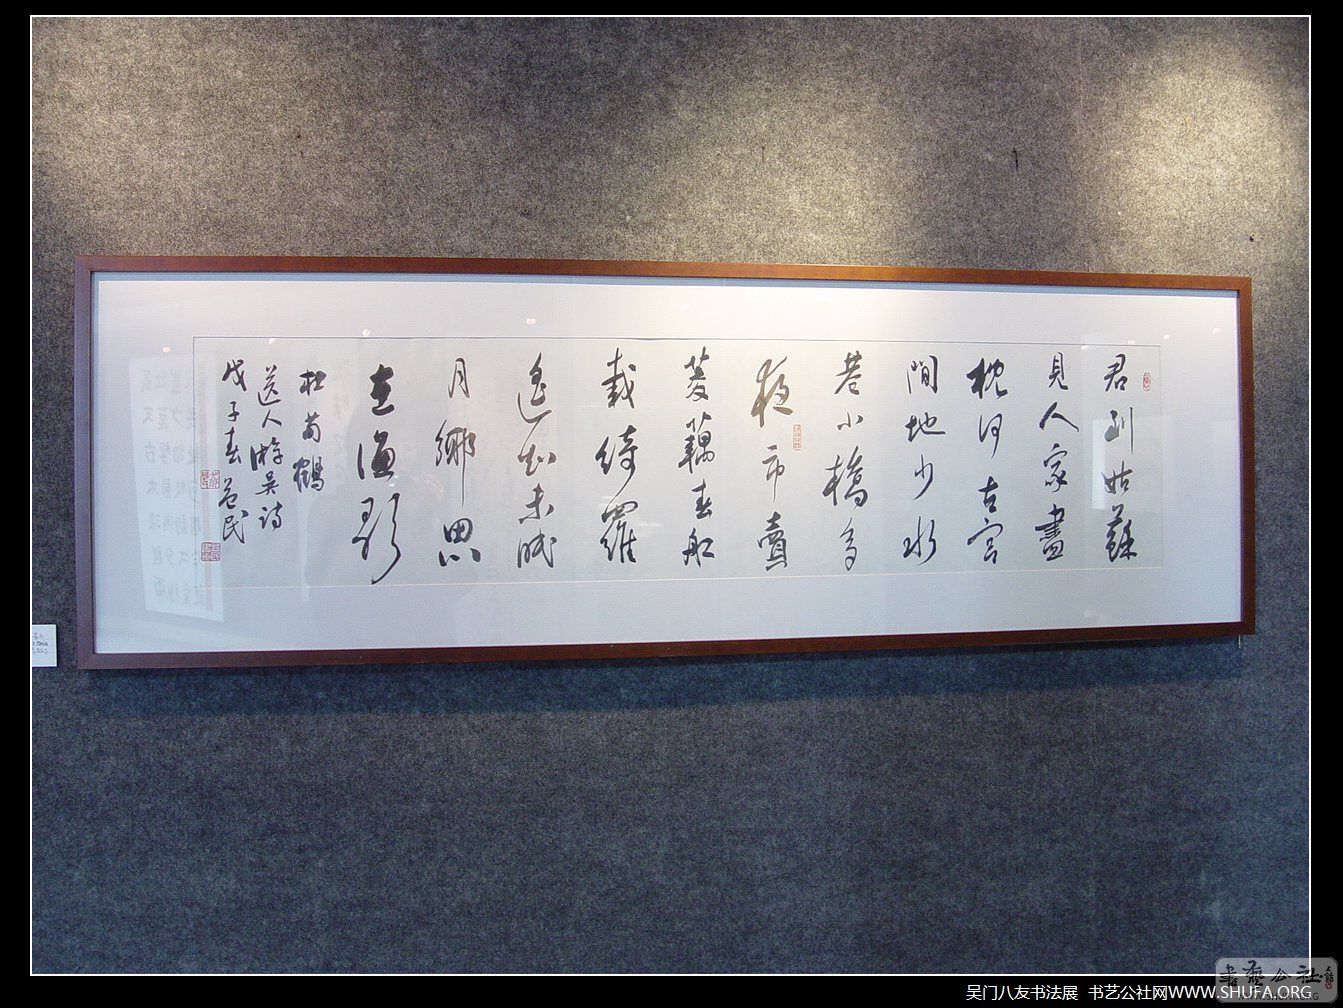 君到姑蘇
見人家盡
枕河古宮
間地少水
巷小橋多
夜市賣
菱藕春船
載綺羅
遙知未眠
月鄉思
在漁歌
杜荀鶴
送人游吳詩
戊子春
吴门八友书法展 书艺公社网WWW.SHUFA.ORG
書藝公社